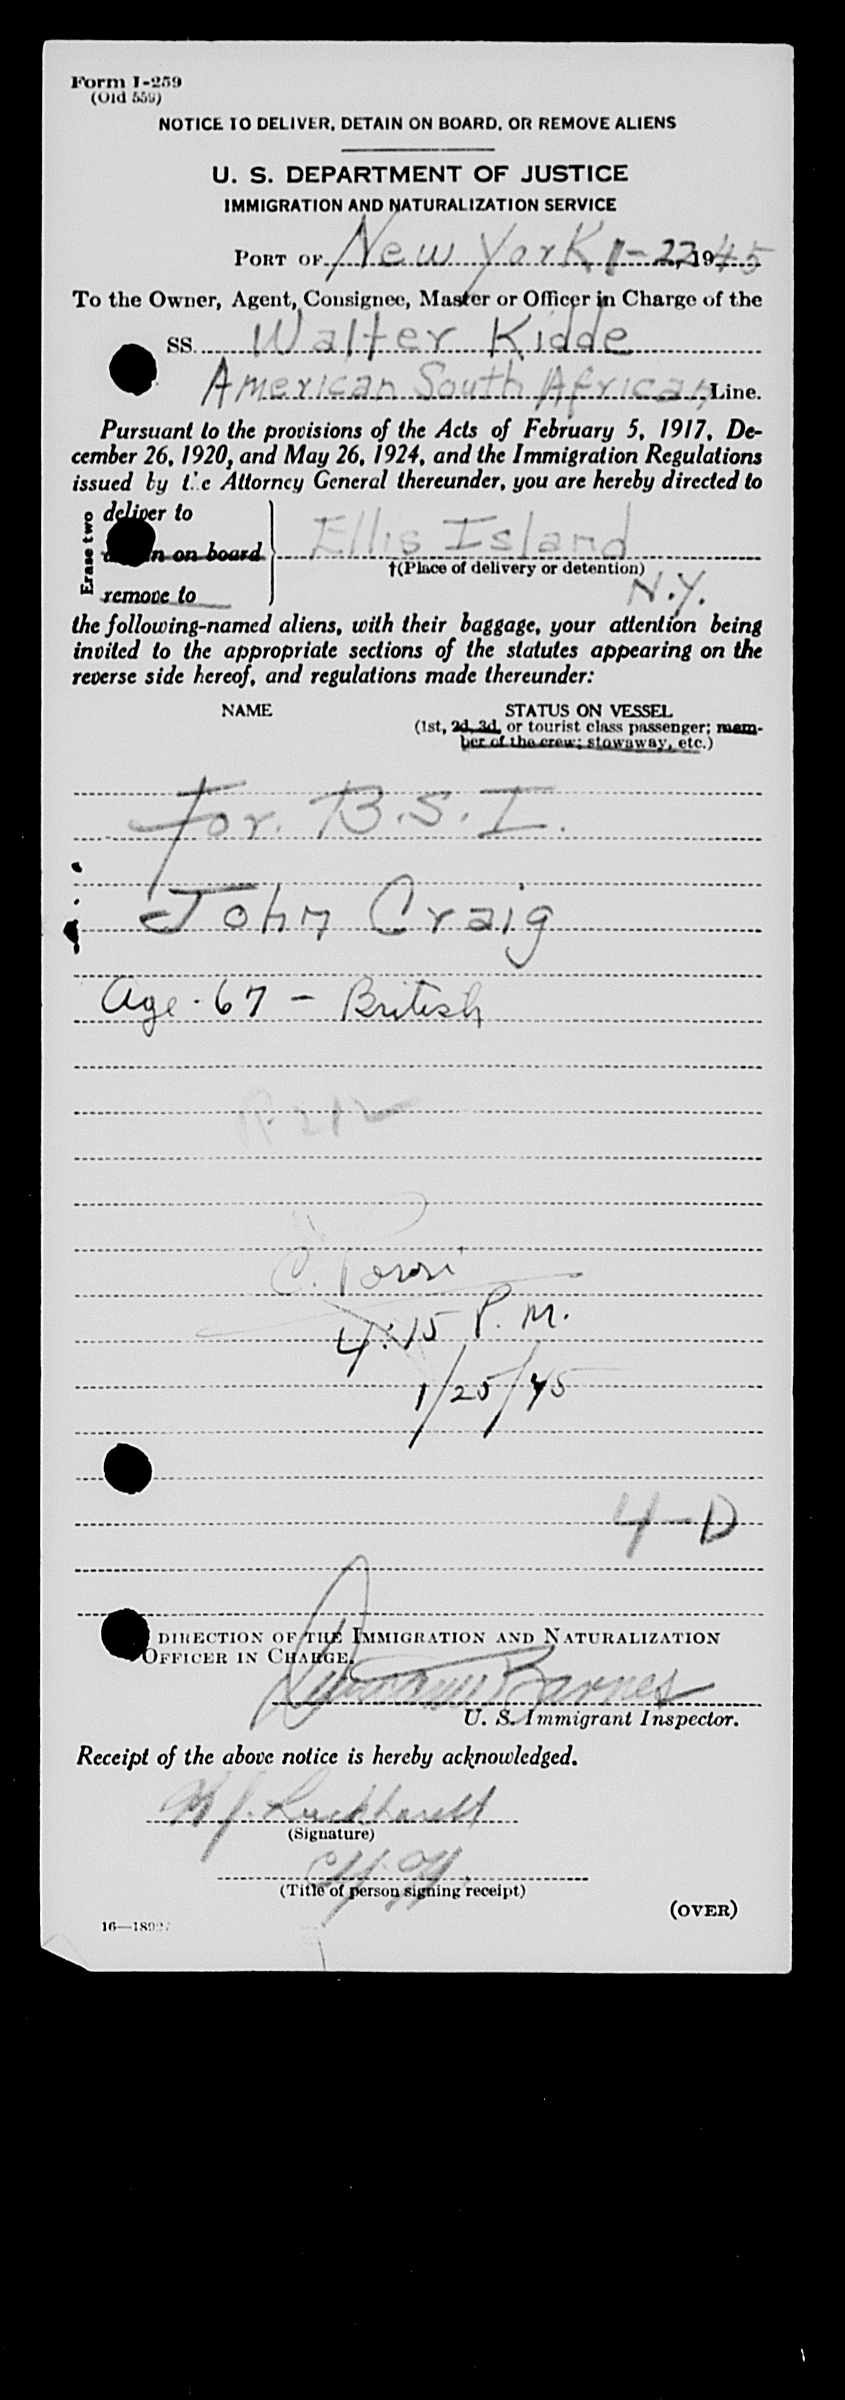 Form I-259
(Old 559)
NOTICE TO DELIVER, DETAIN ON BOARD, OR REMOVE ALIENS
U. S. DEPARTMENT OF JUSTICE
IMMIGRATION AND NATURALIZATION SERVICE
PORT OF New York 1-22, 1945
To the Owner, Agent, Consignee, Master or Officer in Charge of the
SS. Walter Kidde
American South African Line.
Pursuant to the provisions of the Acts of February 5, 1917, De-
cember 26, 1920, and May 26, 1924, and the Immigration Regulations
issued by the Attorney General thereunder, you are hereby directed to
Erase two
deliver to
on board
remove to
Ellis Island
†(Place of delivery or detention)
N.Y.
the following-named aliens, with their baggage, your attention being
invited to the appropriate sections of the statutes appearing on the
reverse side hereof, and regulations made thereunder:
NAME STATUS ON VESSEL
(1st, 2d, 3d, or tourist class passenger; mem-
ber of the crew; stowaway, etc.)
For. B.S.I.
John Craig
Age - 67 - British
212
4:15 P.M.
1/25/45
4-D
DIRECTION OF THE IMMIGRATION AND NATURALIZATION
OFFICER IN CHARGE.
Barnes
U. S. Immigrant Inspector.
Receipt of the above notice is hereby acknowledged.
(Signature)
(Title of person signing receipt)
(OVER)